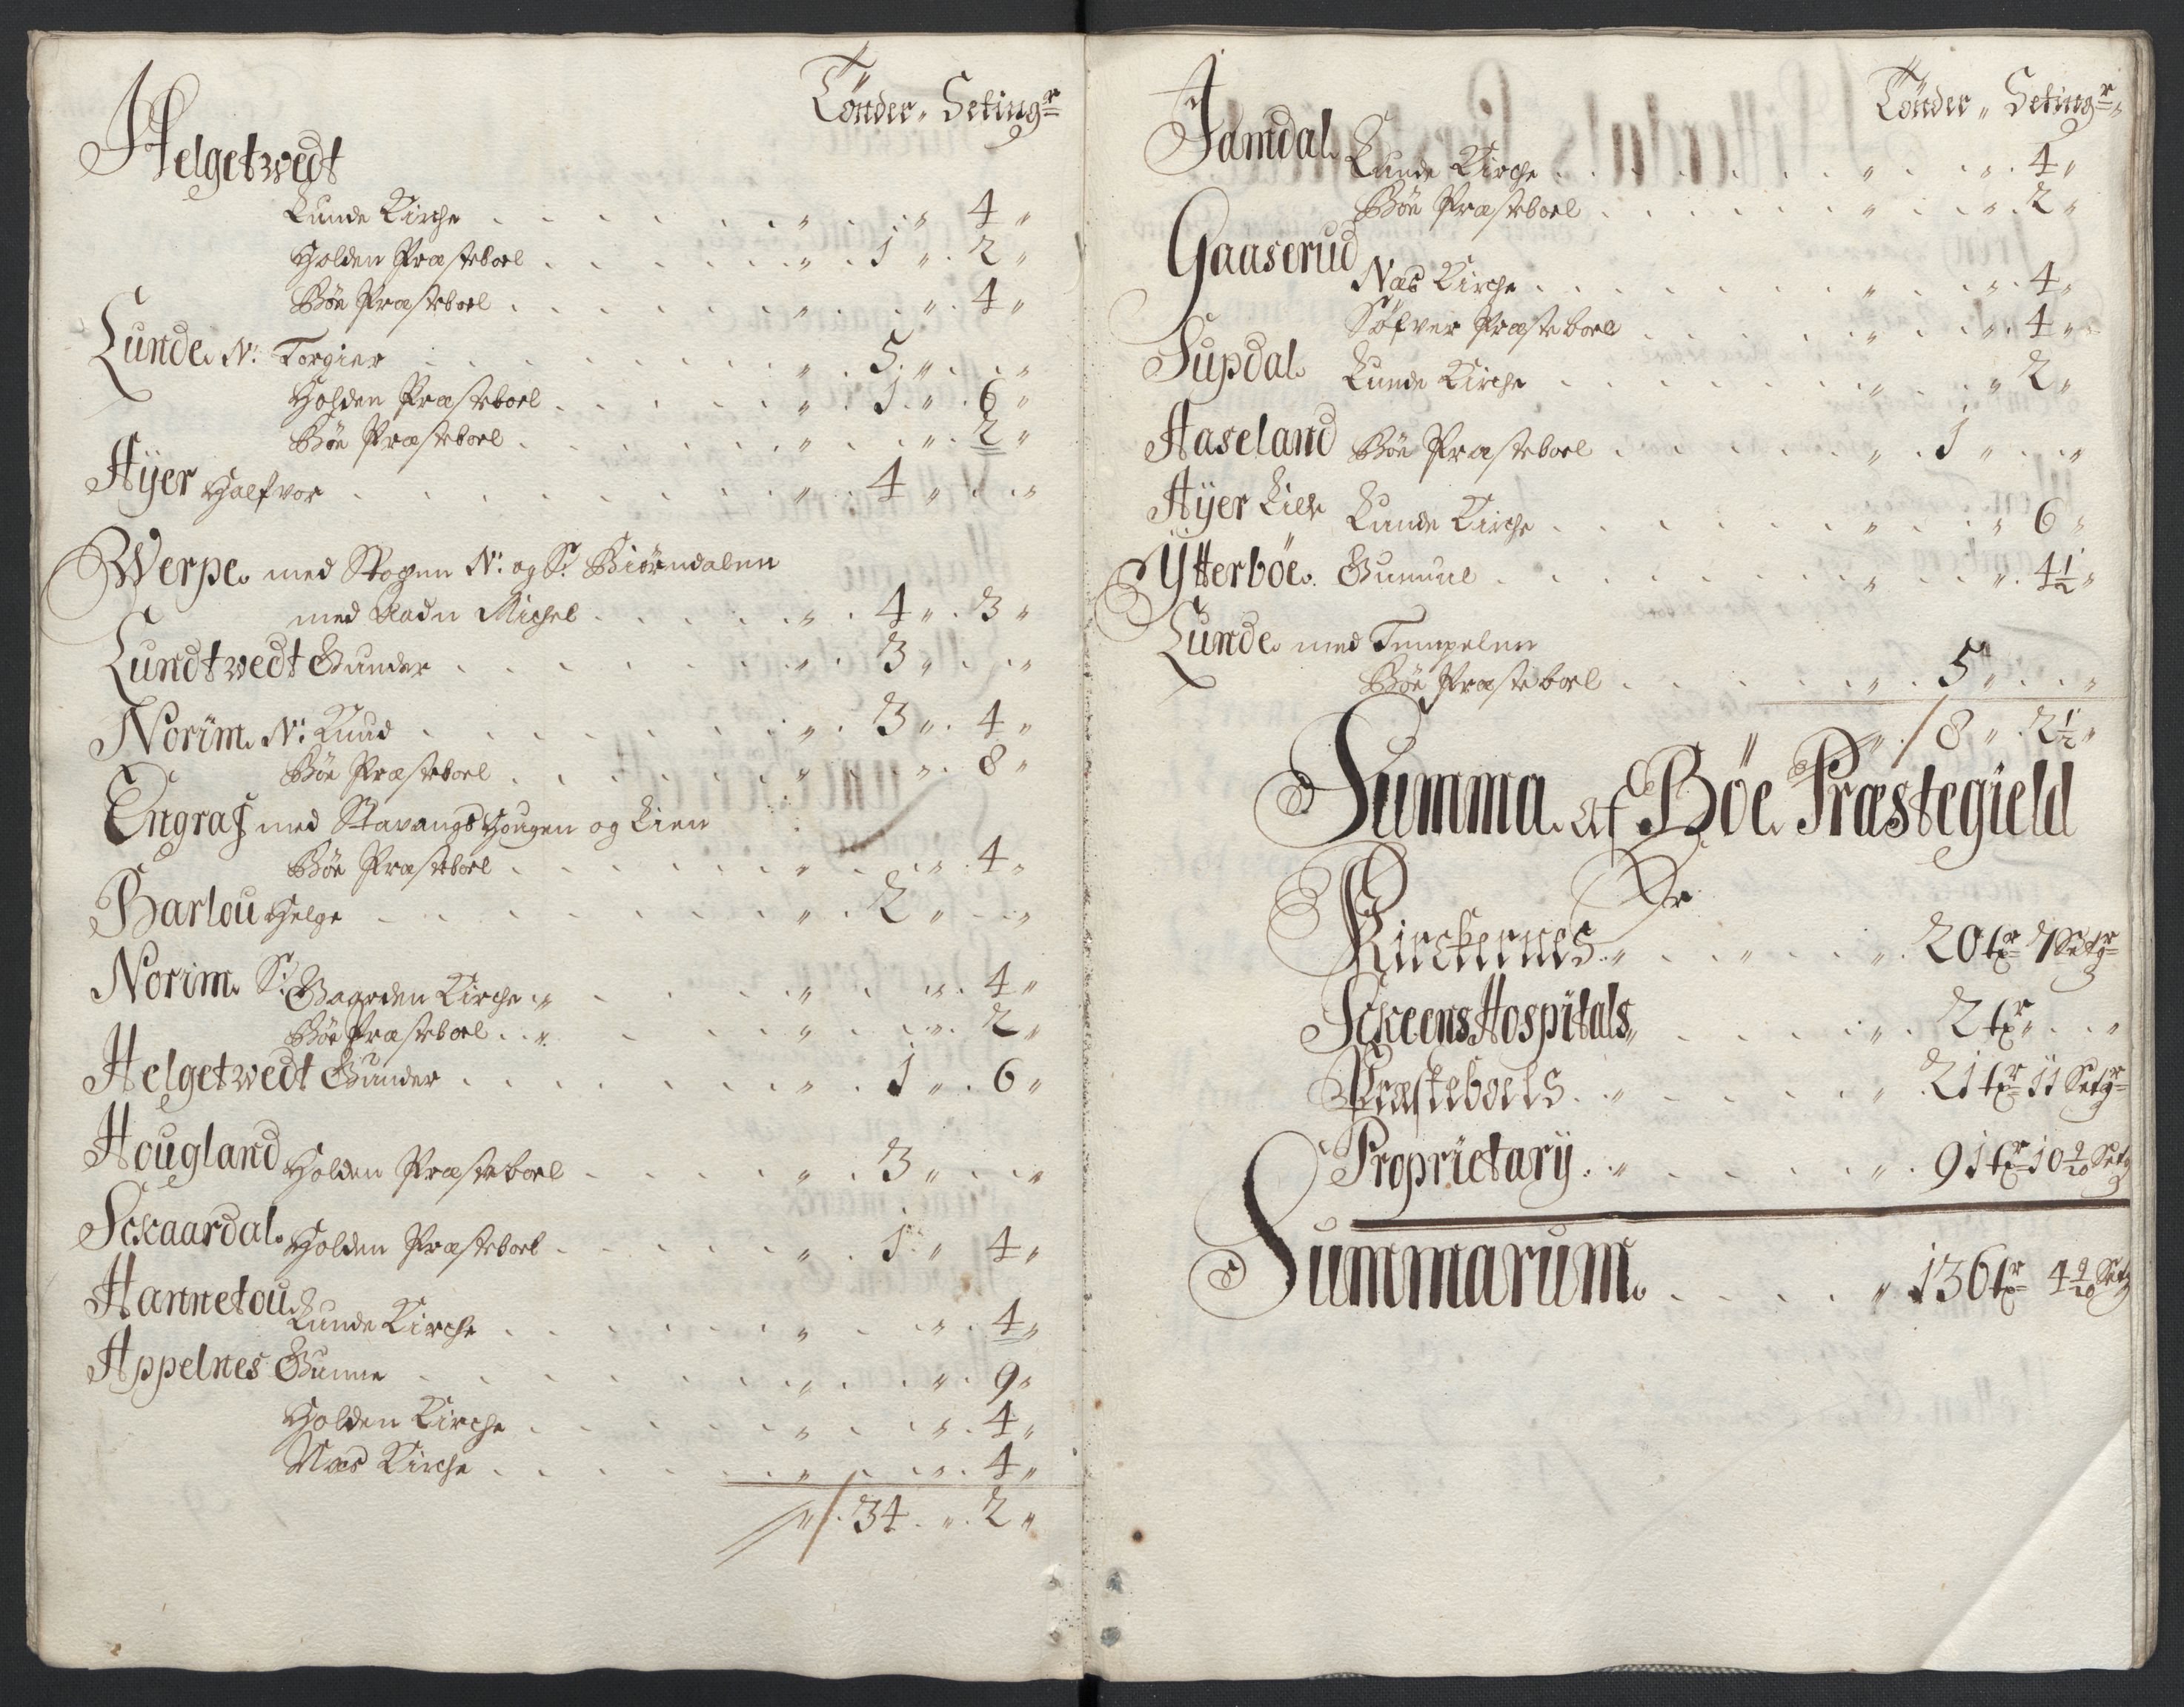 Tönder „ Seting<sup>r</sup>
Helgetwedt
Lunde Kirche . . . „ . . „ 4 „
Holden Præsteboel . . . „ . 1 „ . 2 „
Böe Præsteboel . . . „ . . „ . 4 „
Lunde N: Torgier . . . „ . 5 „ . . „
Holden Præsteboel . . . „ . 1 „ . 6 „
Böe Præsteboel . . . „ . . „ . 2 „
Hÿer Halfvor . . . „ . 4 „ . . „
Werpe med Skogen N: og S: Biörndalen
med Aadn Michel . . . „ . 4 „ . 3 „
Lundtwedt Gunder . . . „ . 3 „ . . „
Norim N: Knud . . . „ . 3 „ . 4 „
Böe Præsteboel . . . „ . . „ . 8 „
Engraf med Stavangs Hougen og Lien
Böe Præsteboel . . . „ . . „ . 4 „
Barlou Helge . . . „ . 2 „ . . „
Norim S: Gaarden Kirche „ . . . „ . . „ . 4 „
Böe Præsteboel . . „ . . . „ . . „ . 2 „
Helgetwedt Gunder . . . „ . 1 „ . 6 „
Hougland Holden Præsteboel . . . „ . 3 „ . . „
Sckaardal Holden Præsteboel . . . „ . 1 „ 4 „
Hannetou Lunde Kirche . . . „ . . „ . 4 „
Appelnes Gunne . . . „ . . „ . 9 „
Holden Kirche . . . „ . . „ . 4 „
Næs Kirche . . . „ . . „ . 4 „
„ / . 34 . „ . 2 „
Tönder „ Seting<sup>r</sup> „
Jamdal Lunde Kirche . . . „ . . „ . 4 „
Böe Præsteboel . . . „ . . „ . 2 „
Gaaserud Næs Kirche . . . „ . . „ . 4 „
Söfver Præsteboel . . . „ . . „ . 4 „
Supdal Lunde Kirche . . . „ . . „ 2 „
Haseland Böe Præsteboel . . . „ . 1 „ . . „
Hÿer Lille Lunde Kirche . . . „ . . „ 6 „
Ÿtterböe Gunnul . . . „ . . „ . 4½ „
Lunde med Tempelen
Böe Præsteboel . . . „ . 5 „ . . „
„ . / 8 „ . 2½ „
Summa Af Böe Præstegield
Er
Kirckernes „ . . . „ . 20 t<sup>r</sup> 7 Set<sup>r</sup>
Sckeens Hospitals „ . . . „ . 2 t<sup>r</sup> „ . . „
Præsteboels . „ . . . „ . 21 t<sup>r</sup> 11 Set<sup>r</sup>
Proprietarÿ . „ . . . „ . 91 t<sup>r</sup> 10 9/10 Set
Summarum . . . . „ 136 t<sup>r</sup> 4 9/10 Set